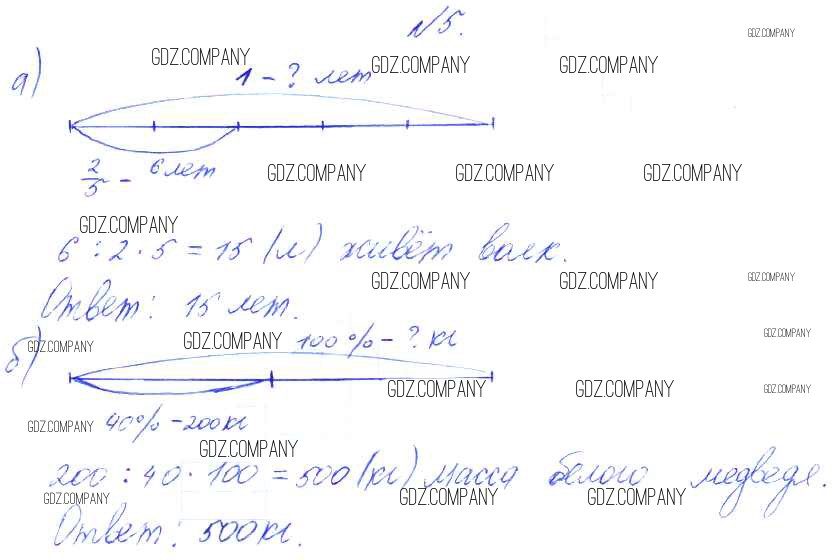 №5.
GDZ.COMPANY
а)
GDZ.COMPANY GDZ.COMPANY GDZ.COMPANY
1 - ? лет
2/5 - 6 лет
GDZ.COMPANY GDZ.COMPANY GDZ.COMPANY
GDZ.COMPANY
6 : 2 · 5 = 15 (л) живёт волк.
GDZ.COMPANY GDZ.COMPANY GDZ.COMPANY
Ответ: 15 лет.
GDZ.COMPANY
б)
GDZ.COMPANY GDZ.COMPANY 100% - ? кг
GDZ.COMPANY GDZ.COMPANY GDZ.COMPANY
GDZ.COMPANY 40% - 200кг
GDZ.COMPANY
200 : 40 · 100 = 500 (кг) масса белого медведя.
GDZ.COMPANY GDZ.COMPANY GDZ.COMPANY
Ответ: 500кг.